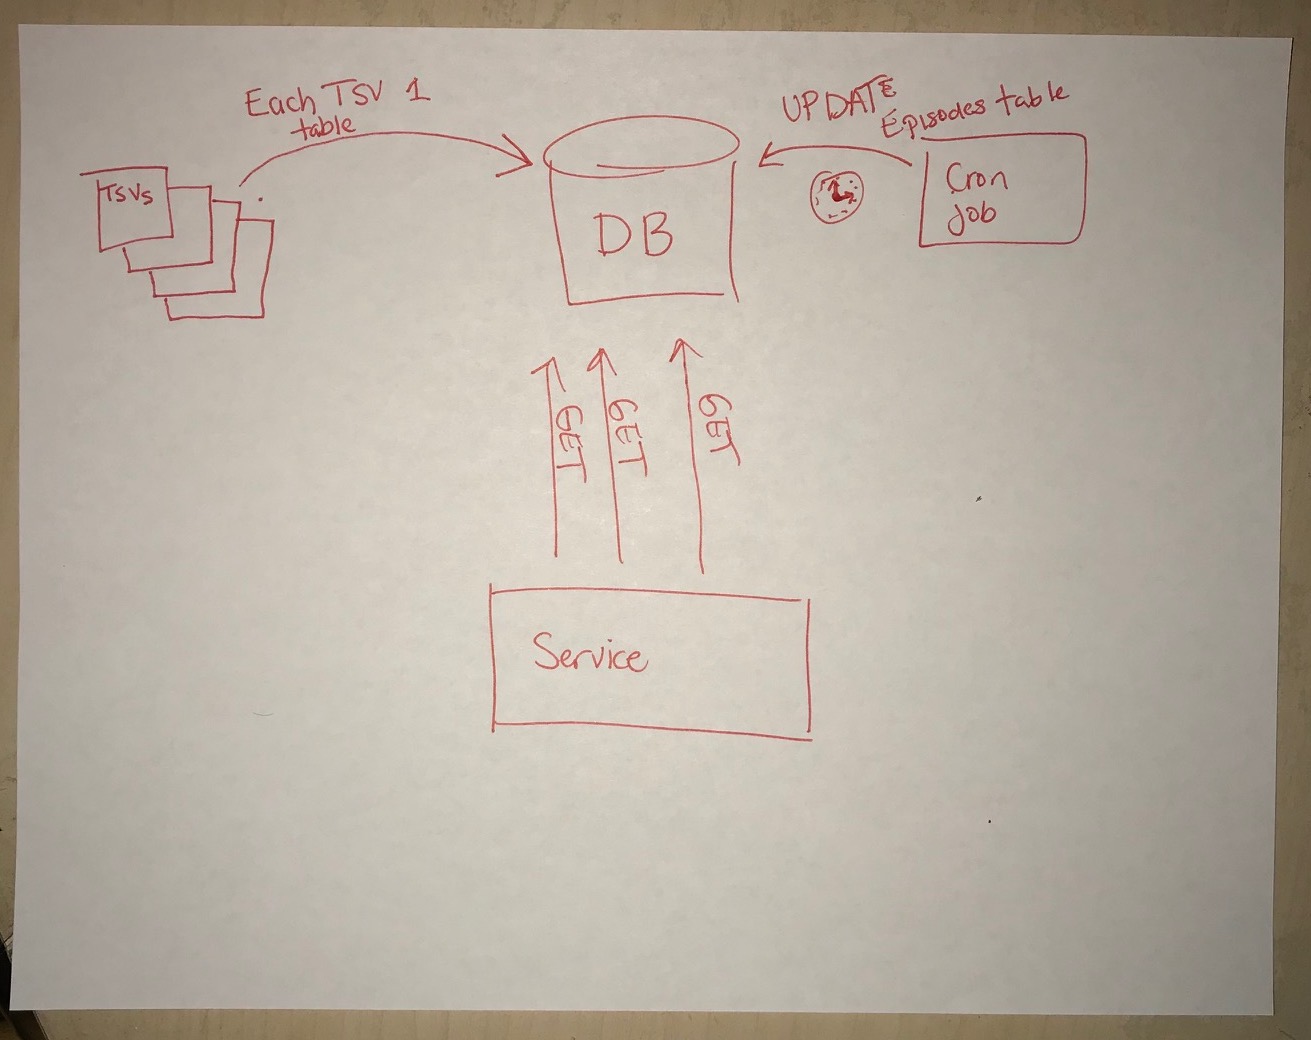 Each TSV 1
table
UPDATE
Episodes table
TSVs
Cron
job
DB
GET
GET
GET
Service